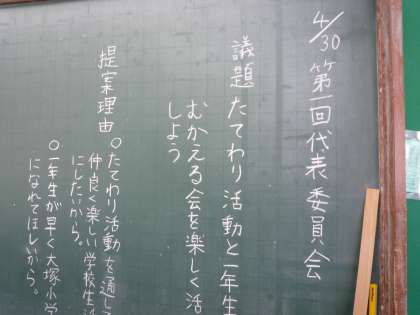 4/30 第一回代表委員会
議題 たてわり活動と一年生
むかえる会を楽しく活
しよう
提案理由
○たてわり活動を通して
仲良く楽しい学校生活
にしたいから。
○一年生が早く大塚小学
になれてほしいから。